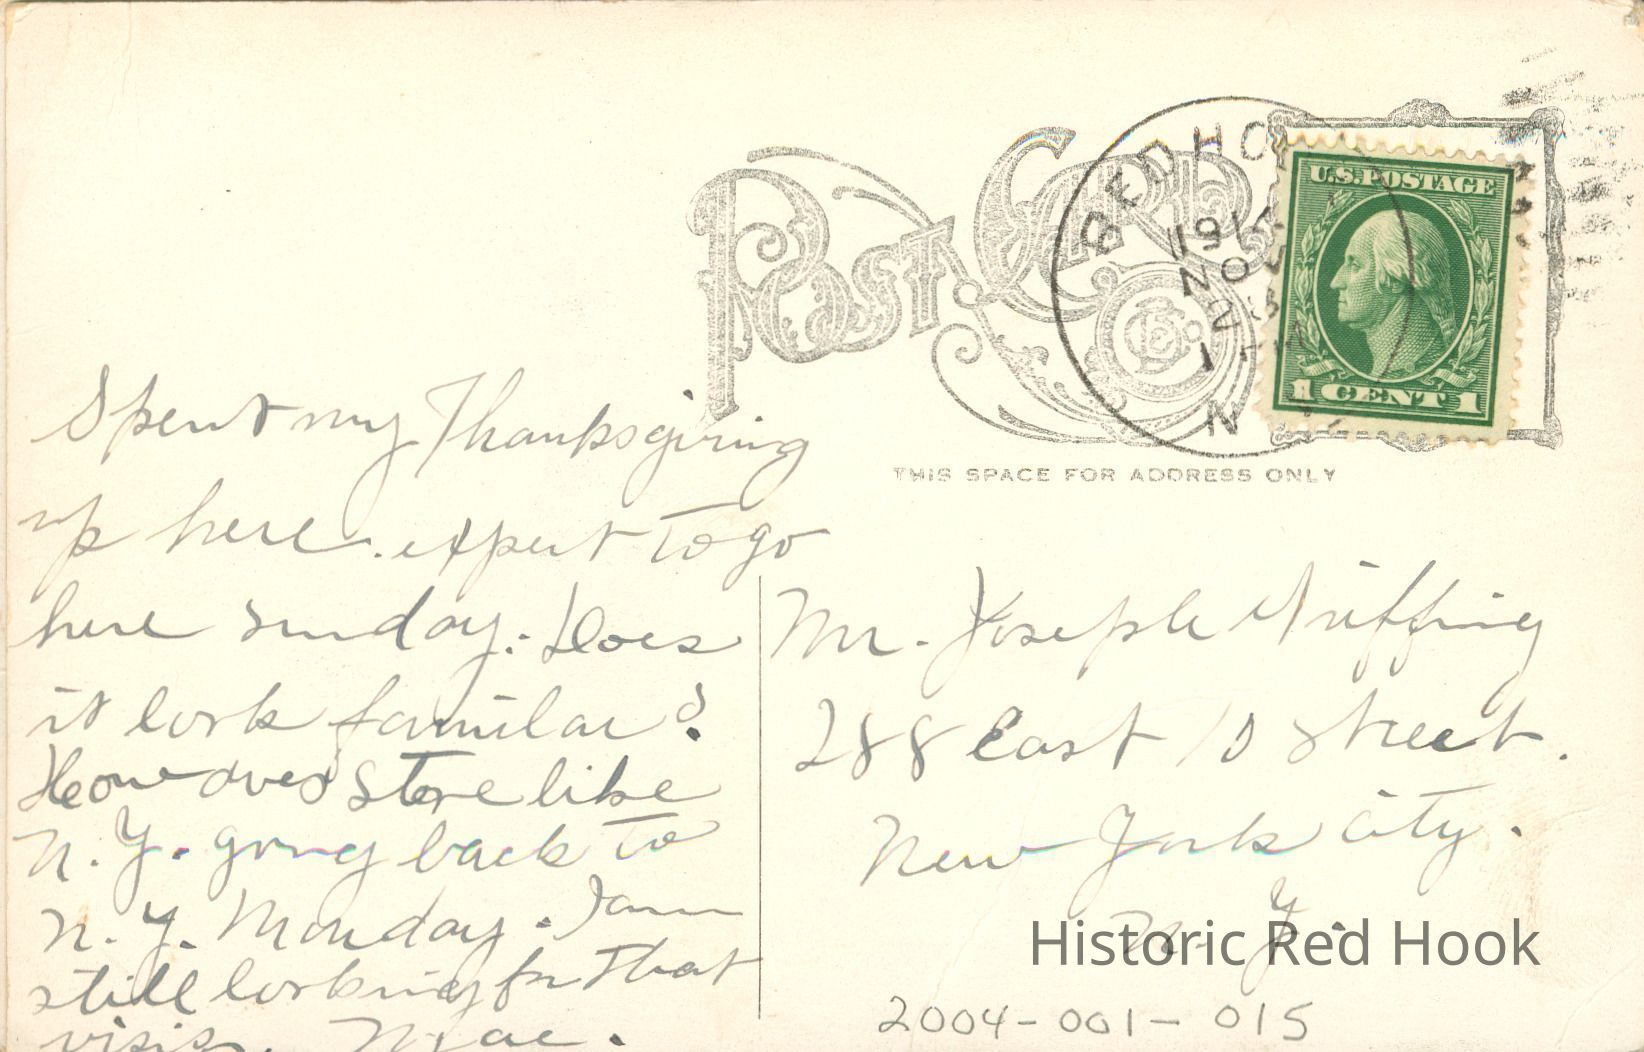 POST CARD
RED HO
NOV
N
U.S. POSTAGE
1 CENT 1
THIS SPACE FOR ADDRESS ONLY
Spent my Thanksgiving
up here. expect to go
here sunday. Does
it look familar?
How does Store like
N.Y. going back to
N.Y. Monday. I am
still looking for that
visit. Mae.
Mr. Joseph Griffing
288 East 10 Street.
New York City.
N. Y.
Historic Red Hook
2004-001-015